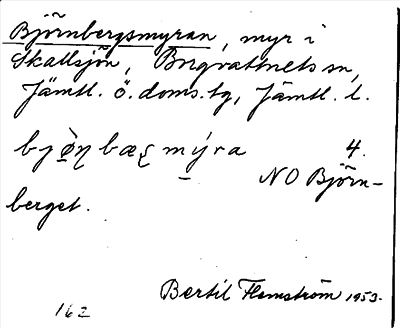 Björnbergsmyran, myr i
Skallsjön, Borgvattnets sn,
Jämtl. ö. doms.tg, Jämtl. l.
4.
NO Björn-
berget.
Bertil Flemström 1953.
162